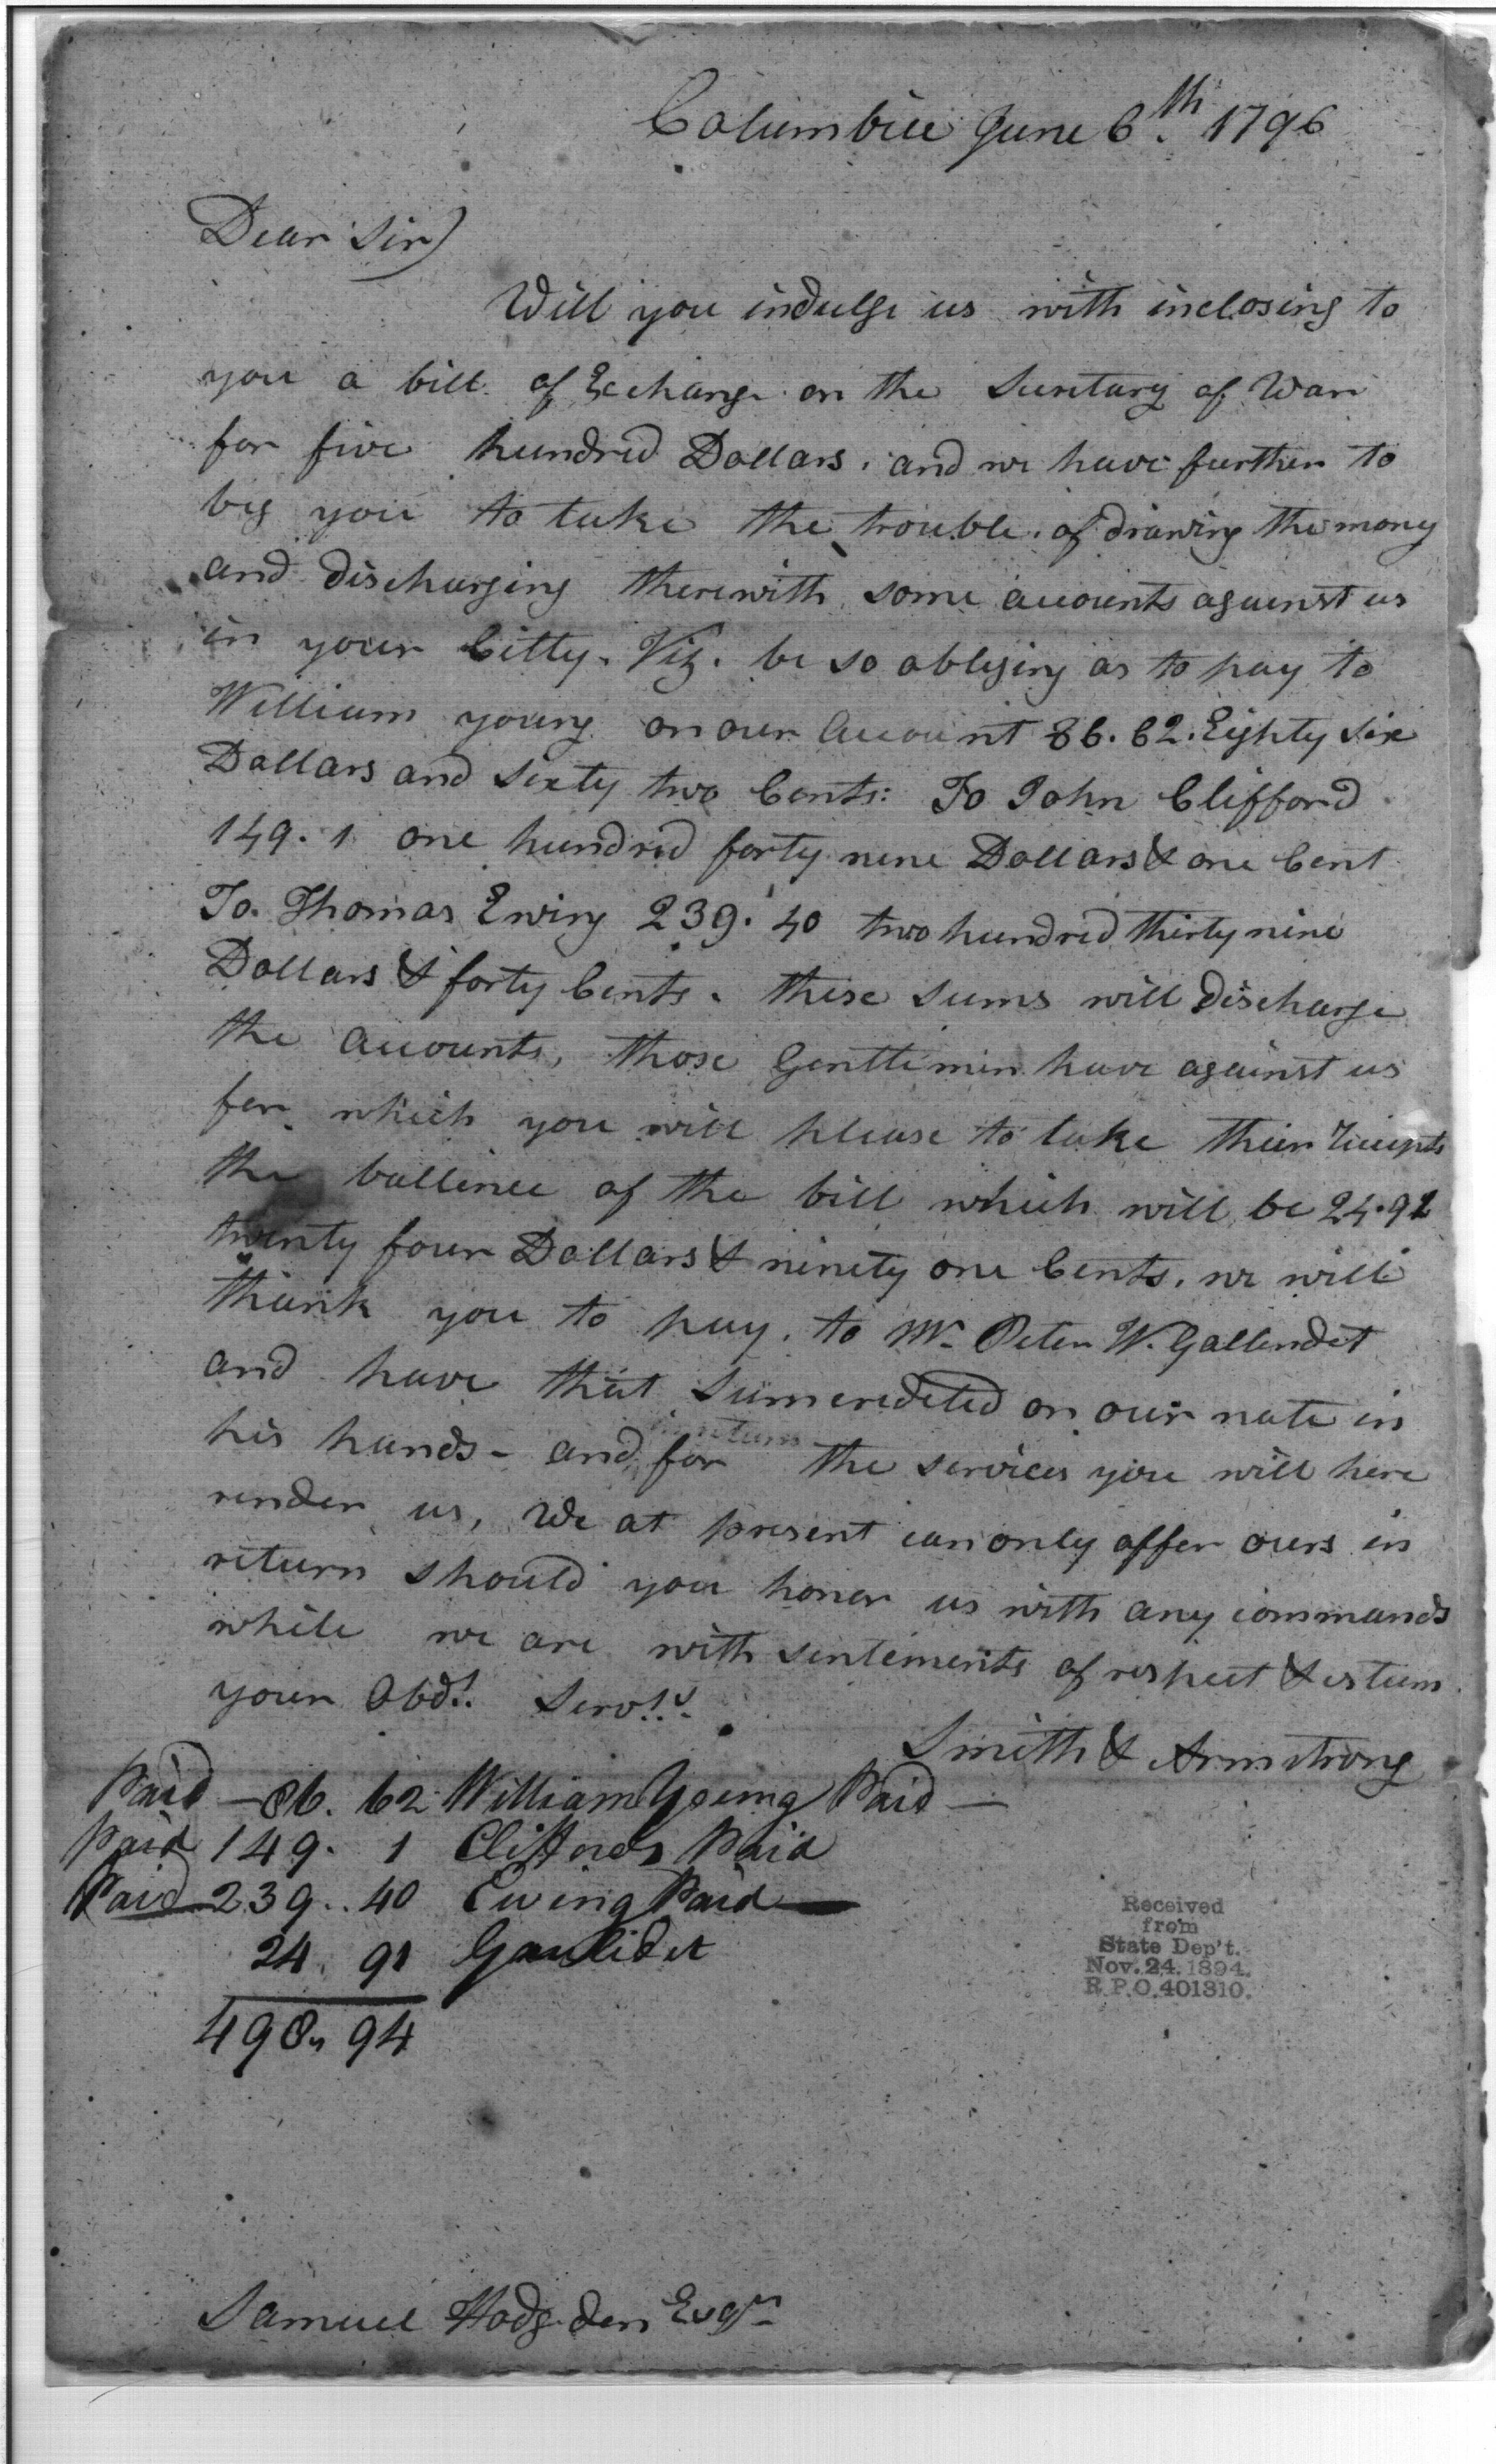 Columbia June 6th. 1796
Dear Sir)
Will you indulge us with inclosing to
you a bill of Exchange on the Secretary of War
for five hundred Dollars. and we have further to
beg you to take the trouble of drawing the mony
and discharging therewith some accounts against us
in your Citty. Viz. be so obliging as to pay to
William young on our account 86.62. Eighty six
Dollars and sixty two Cents: To John Clifford
149. 1 one hundred forty nine Dollars & one Cent
To. Thomas Ewing 239. 40 two hundred thirty nine
Dollars & forty Cents. these sums will discharge
the accounts, those Gentlemen have against us
for which you will please to take their receipts
the ballince of the bill which will be 24.91
twenty four Dollars & ninety one Cents. we will
thank you to pay. to Mr. Peter W. Gallendet
and have that sum credited on our note in
his hands - and for the services you will here
render us, We at present can only offer ours in
return should you honor us with any commands
while we are with sentements of respect & esteem
your Obdt. Servts.
Smith & Armstrong
Paid - 86. 62 William Young Paid -
Paid 149. 1 Cliffords Paid
Paid 239.. 40 Ewing Paid
24. 91 Gaulidet
498. 94
Received
from
State Dep't.
Nov. 24. 1894.
R.P.O. 401310.
Samuel Hodgden Esqr